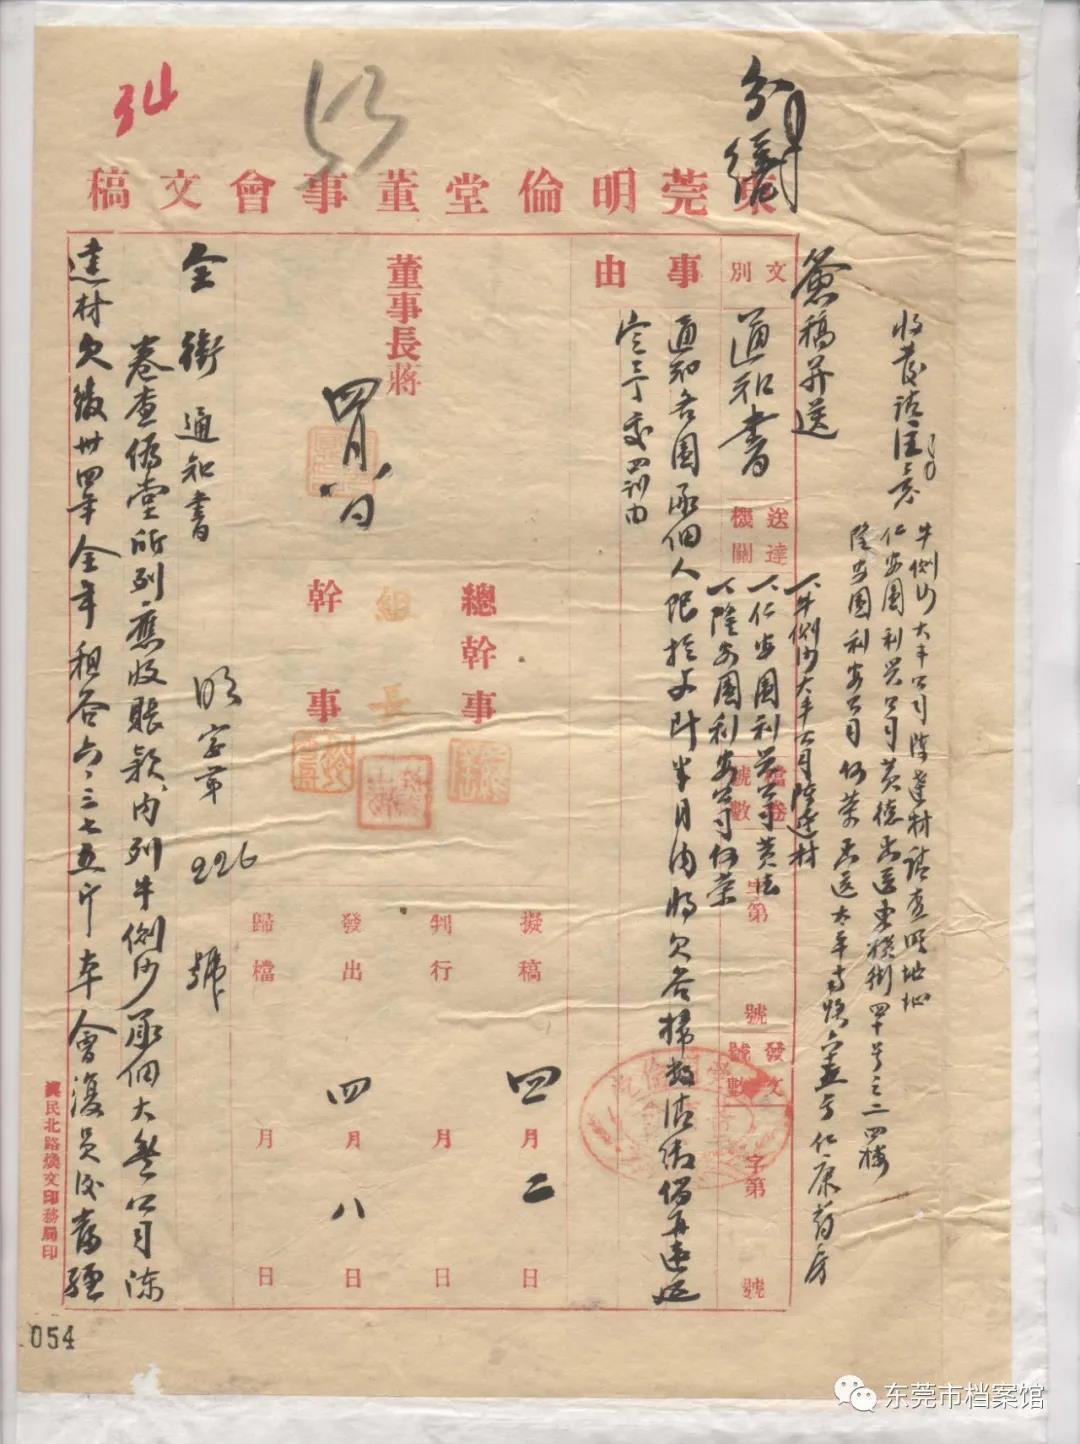 34
分繕
東莞明倫堂董事會文稿
收發請注意
牛側沙大丰公司陳達材請查明地址
仁安圍利興公司黃德 送東橫街四十号之二四楼
隆安圍利安公司何榮 送太平 仁康葯房
簽稿并送
文別
通知書
送達機關
一、牛側沙大丰公司陳達材
一、仁安圍利興公司黃
一、隆安圍利安公司何榮
檔卷號數
字第
號
發文號數
字第
號
事由
通知各圍承佃人限於文到半月内將欠谷掃數清繳倘再違延
定予 由
擬稿
四月二日
判行
月
日
發出
四月八日
歸檔
月
日
總幹事
組長
幹事
董事長蔣
四月 日
全銜通知書
明字第226號
卷查偽堂所列應收賬款內列牛側沙承佃大丰公司陳
達材欠繳卅四年全年租谷六、三七五斤本會復員後 經
漢民北路煥文印務局印
054
东莞市档案馆